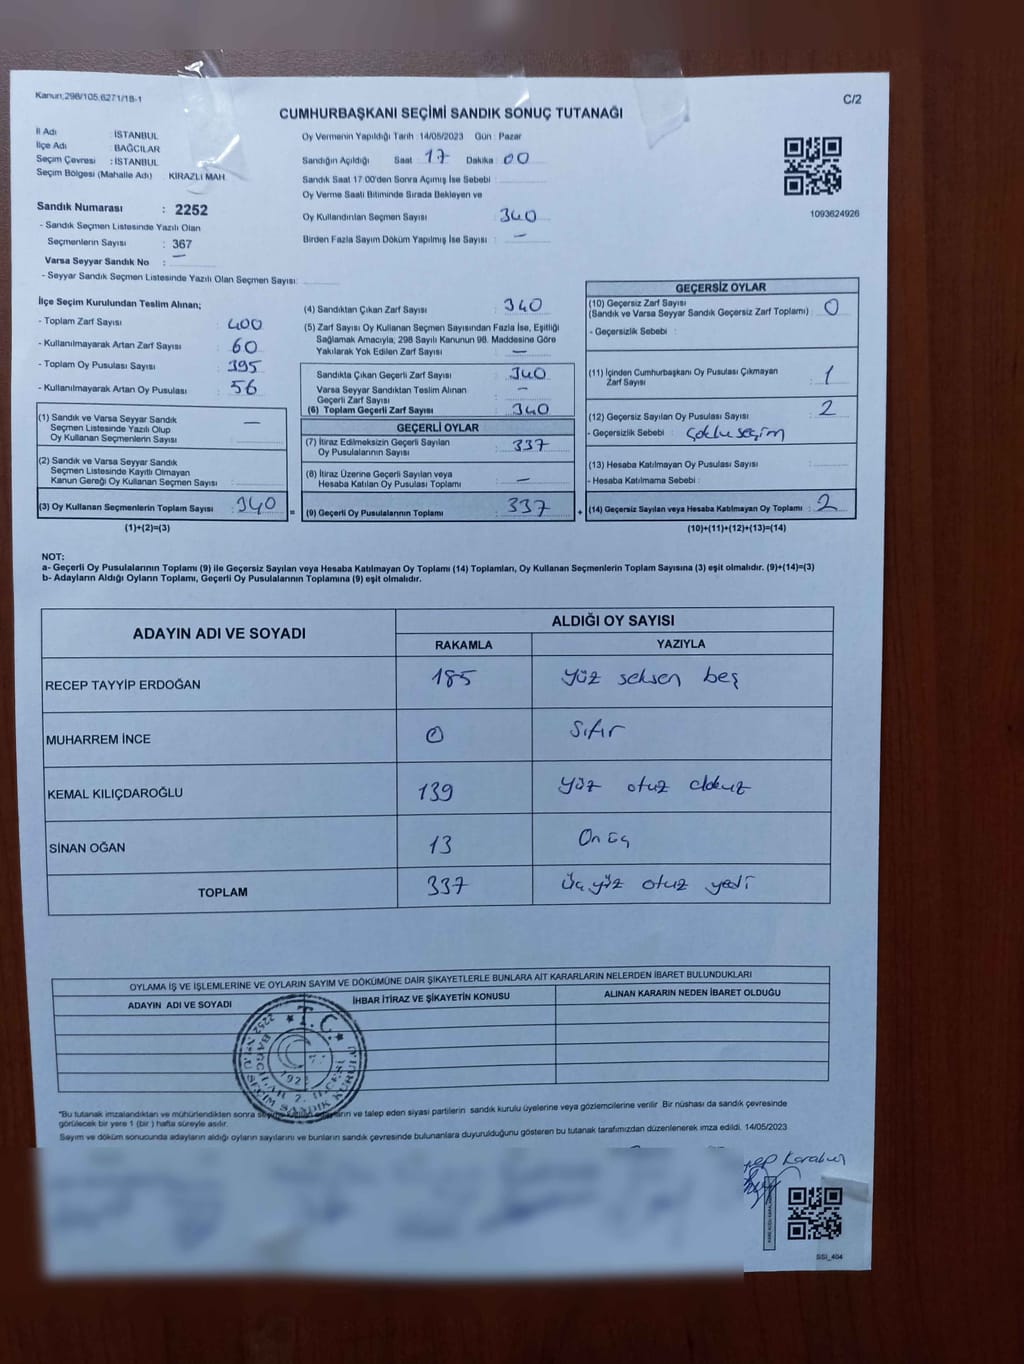 Kanun:298/105,6271/18-1
C/2
CUMHURBAŞKANI SEÇİMİ SANDIK SONUÇ TUTANAĞI
İl Adı : İSTANBUL
İlçe Adı : BAĞCILAR
Seçim Çevresi : İSTANBUL
Seçim Bölgesi (Mahalle Adı) : KİRAZLI MAH.
Oy Vermenin Yapıldığı Tarih :14/05/2023 Gün : Pazar
Sandığın Açıldığı Saat : 17 Dakika : 00
Sandık Saat 17:00'den Sonra Açımış İse Sebebi :
Oy Verme Saati Bitiminde Sırada Bekleyen ve
Oy Kullandırılan Seçmen Sayısı : 340
Birden Fazla Sayım Döküm Yapılmış İse Sayısı : —
1093624926
Sandık Numarası : 2252
- Sandık Seçmen Listesinde Yazılı Olan
Seçmenlerin Sayısı : 367
Varsa Seyyar Sandık No : —
- Seyyar Sandık Seçmen Listesinde Yazılı Olan Seçmen Sayısı:
İlçe Seçim Kurulundan Teslim Alınan;
- Toplam Zarf Sayısı : 400
- Kullanılmayarak Artan Zarf Sayısı : 60
- Toplam Oy Pusulası Sayısı : 395
- Kullanılmayarak Artan Oy Pusulası : 56
(1) Sandık ve Varsa Seyyar Sandık
Seçmen Listesinde Yazılı Olup
Oy Kullanan Seçmenlerin Sayısı : —
(2) Sandık ve Varsa Seyyar Sandık
Seçmen Listesinde Kayıtlı Olmayan
Kanun Gereği Oy Kullanan Seçmen Sayısı :
(3) Oy Kullanan Seçmenlerin Toplam Sayısı : 340
(1)+(2)=(3)
(4) Sandıktan Çıkan Zarf Sayısı : 340
(5) Zarf Sayısı Oy Kullanan Seçmen Sayısından Fazla İse, Eşitliği
Sağlamak Amacıyla, 298 Sayılı Kanunun 98. Maddesine Göre
Yakılarak Yok Edilen Zarf Sayısı : —
Sandıkta Çıkan Geçerli Zarf Sayısı : 340
Varsa Seyyar Sandıktan Teslim Alınan
Geçerli Zarf Sayısı : —
(6) Toplam Geçerli Zarf Sayısı : 340
GEÇERLİ OYLAR
(7) İtiraz Edilmeksizin Geçerli Sayılan
Oy Pusulalarının Sayısı : 337
(8) İtiraz Üzerine Geçerli Sayılan veya
Hesaba Katılan Oy Pusulası Toplamı : —
(9) Geçerli Oy Pusulalarının Toplamı : 337
GEÇERSİZ OYLAR
(10) Geçersiz Zarf Sayısı
(Sandık ve Varsa Seyyar Sandık Geçersiz Zarf Toplamı) : 0
- Geçersizlik Sebebi :
(11) İçinden Cumhurbaşkanı Oy Pusulası Çıkmayan
Zarf Sayısı : 1
(12) Geçersiz Sayılan Oy Pusulası Sayısı : 2
- Geçersizlik Sebebi : Çoklu seçim
(13) Hesaba Katılmayan Oy Pusulası Sayısı :
- Hesaba Katılmama Sebebi :
(14) Geçersiz Sayılan veya Hesaba Katılmayan Oy Toplamı : 2
(10)+(11)+(12)+(13)=(14)
NOT:
a- Geçerli Oy Pusulalarının Toplamı (9) ile Geçersiz Sayılan veya Hesaba Katılmayan Oy Toplamı (14) Toplamları, Oy Kullanan Seçmenlerin Toplam Sayısına (3) eşit olmalıdır. (9)+(14)=(3)
b- Adayların Aldığı Oyların Toplamı, Geçerli Oy Pusulalarının Toplamına (9) eşit olmalıdır.
ADAYIN ADI VE SOYADI
ALDIĞI OY SAYISI
RAKAMLA YAZIYLA
RECEP TAYYİP ERDOĞAN 185 Yüz seksen beş
MUHARREM İNCE 0 Sıfır
KEMAL KILIÇDAROĞLU 139 Yüz otuz dokuz
SİNAN OĞAN 13 On üç
TOPLAM 337 Üç yüz otuz yedi
OYLAMA İŞ VE İŞLEMLERİNE VE OYLARIN SAYIM VE DÖKÜMÜNE DAİR ŞİKAYETLERLE BUNLARA AİT KARARLARIN NELERDEN İBARET BULUNDUKLARI
ADAYIN ADI VE SOYADI İHBAR İTİRAZ VE ŞİKAYETİN KONUSU ALINAN KARARIN NEDEN İBARET OLDUĞU
T.C.
BAĞCILAR 2. İLÇESİ
2252 NOLU SEÇİM SANDIK KURULU
*Bu tutanak imzalandıktan ve mühürlendikten sonra ve talep eden siyasi partilerin sandık kurulu üyelerine veya gözlemcilerine verilir. Bir nüshası da sandık çevresinde
görülecek bir yere 1 (bir) hafta süreyle asılır.
Sayım ve döküm sonucunda adayların aldığı oyların sayılarını ve bunların sandık çevresinde bulunanlara duyurulduğunu gösteren bu tutanak tarafımızdan düzenlenerek imza edildi. 14/05/2023
SSI_404